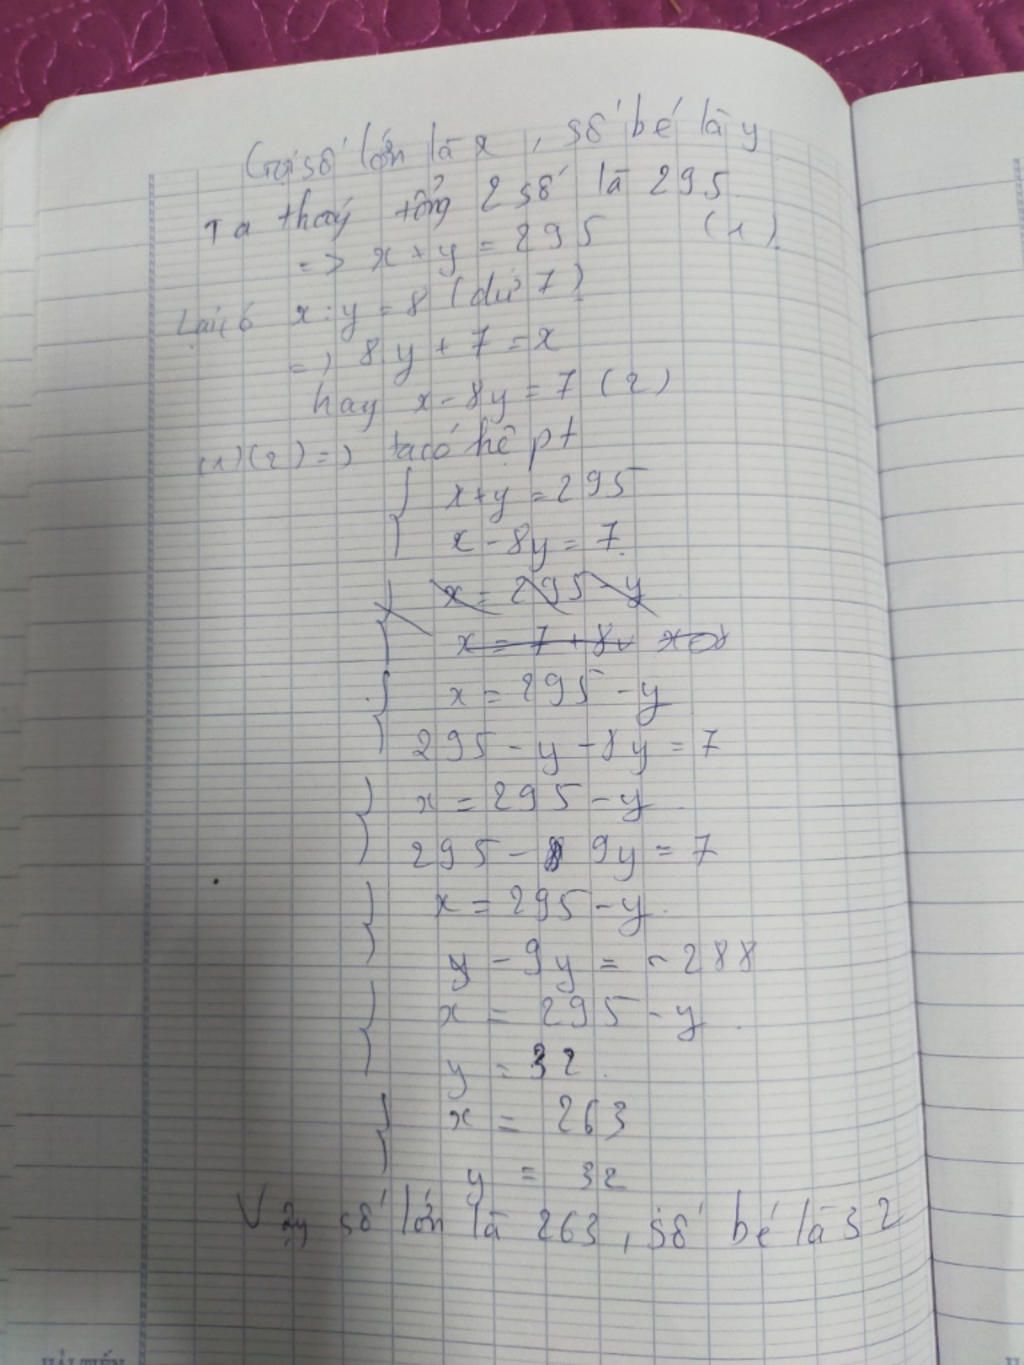 Gọi số lớn là x, số bé là y
Ta thấy tổng 2 số là 295
=> x + y = 295 (1)
Lại có x : y = 8 (dư 7)
=> 8y + 7 = x
hay x - 8y = 7 (2)
(1)(2) => ta có hệ pt
{ x + y = 295
x - 8y = 7
x = 295 - y
x = 7 + 8y
{ x = 295 - y
295 - y - 8y = 7
{ x = 295 - y
295 - 9y = 7
{ x = 295 - y
- 9y = - 288
{ x = 295 - y
y = 32
{ x = 263
y = 32
Vậy số lớn là 263, số bé là 32
HẢI TIẾN